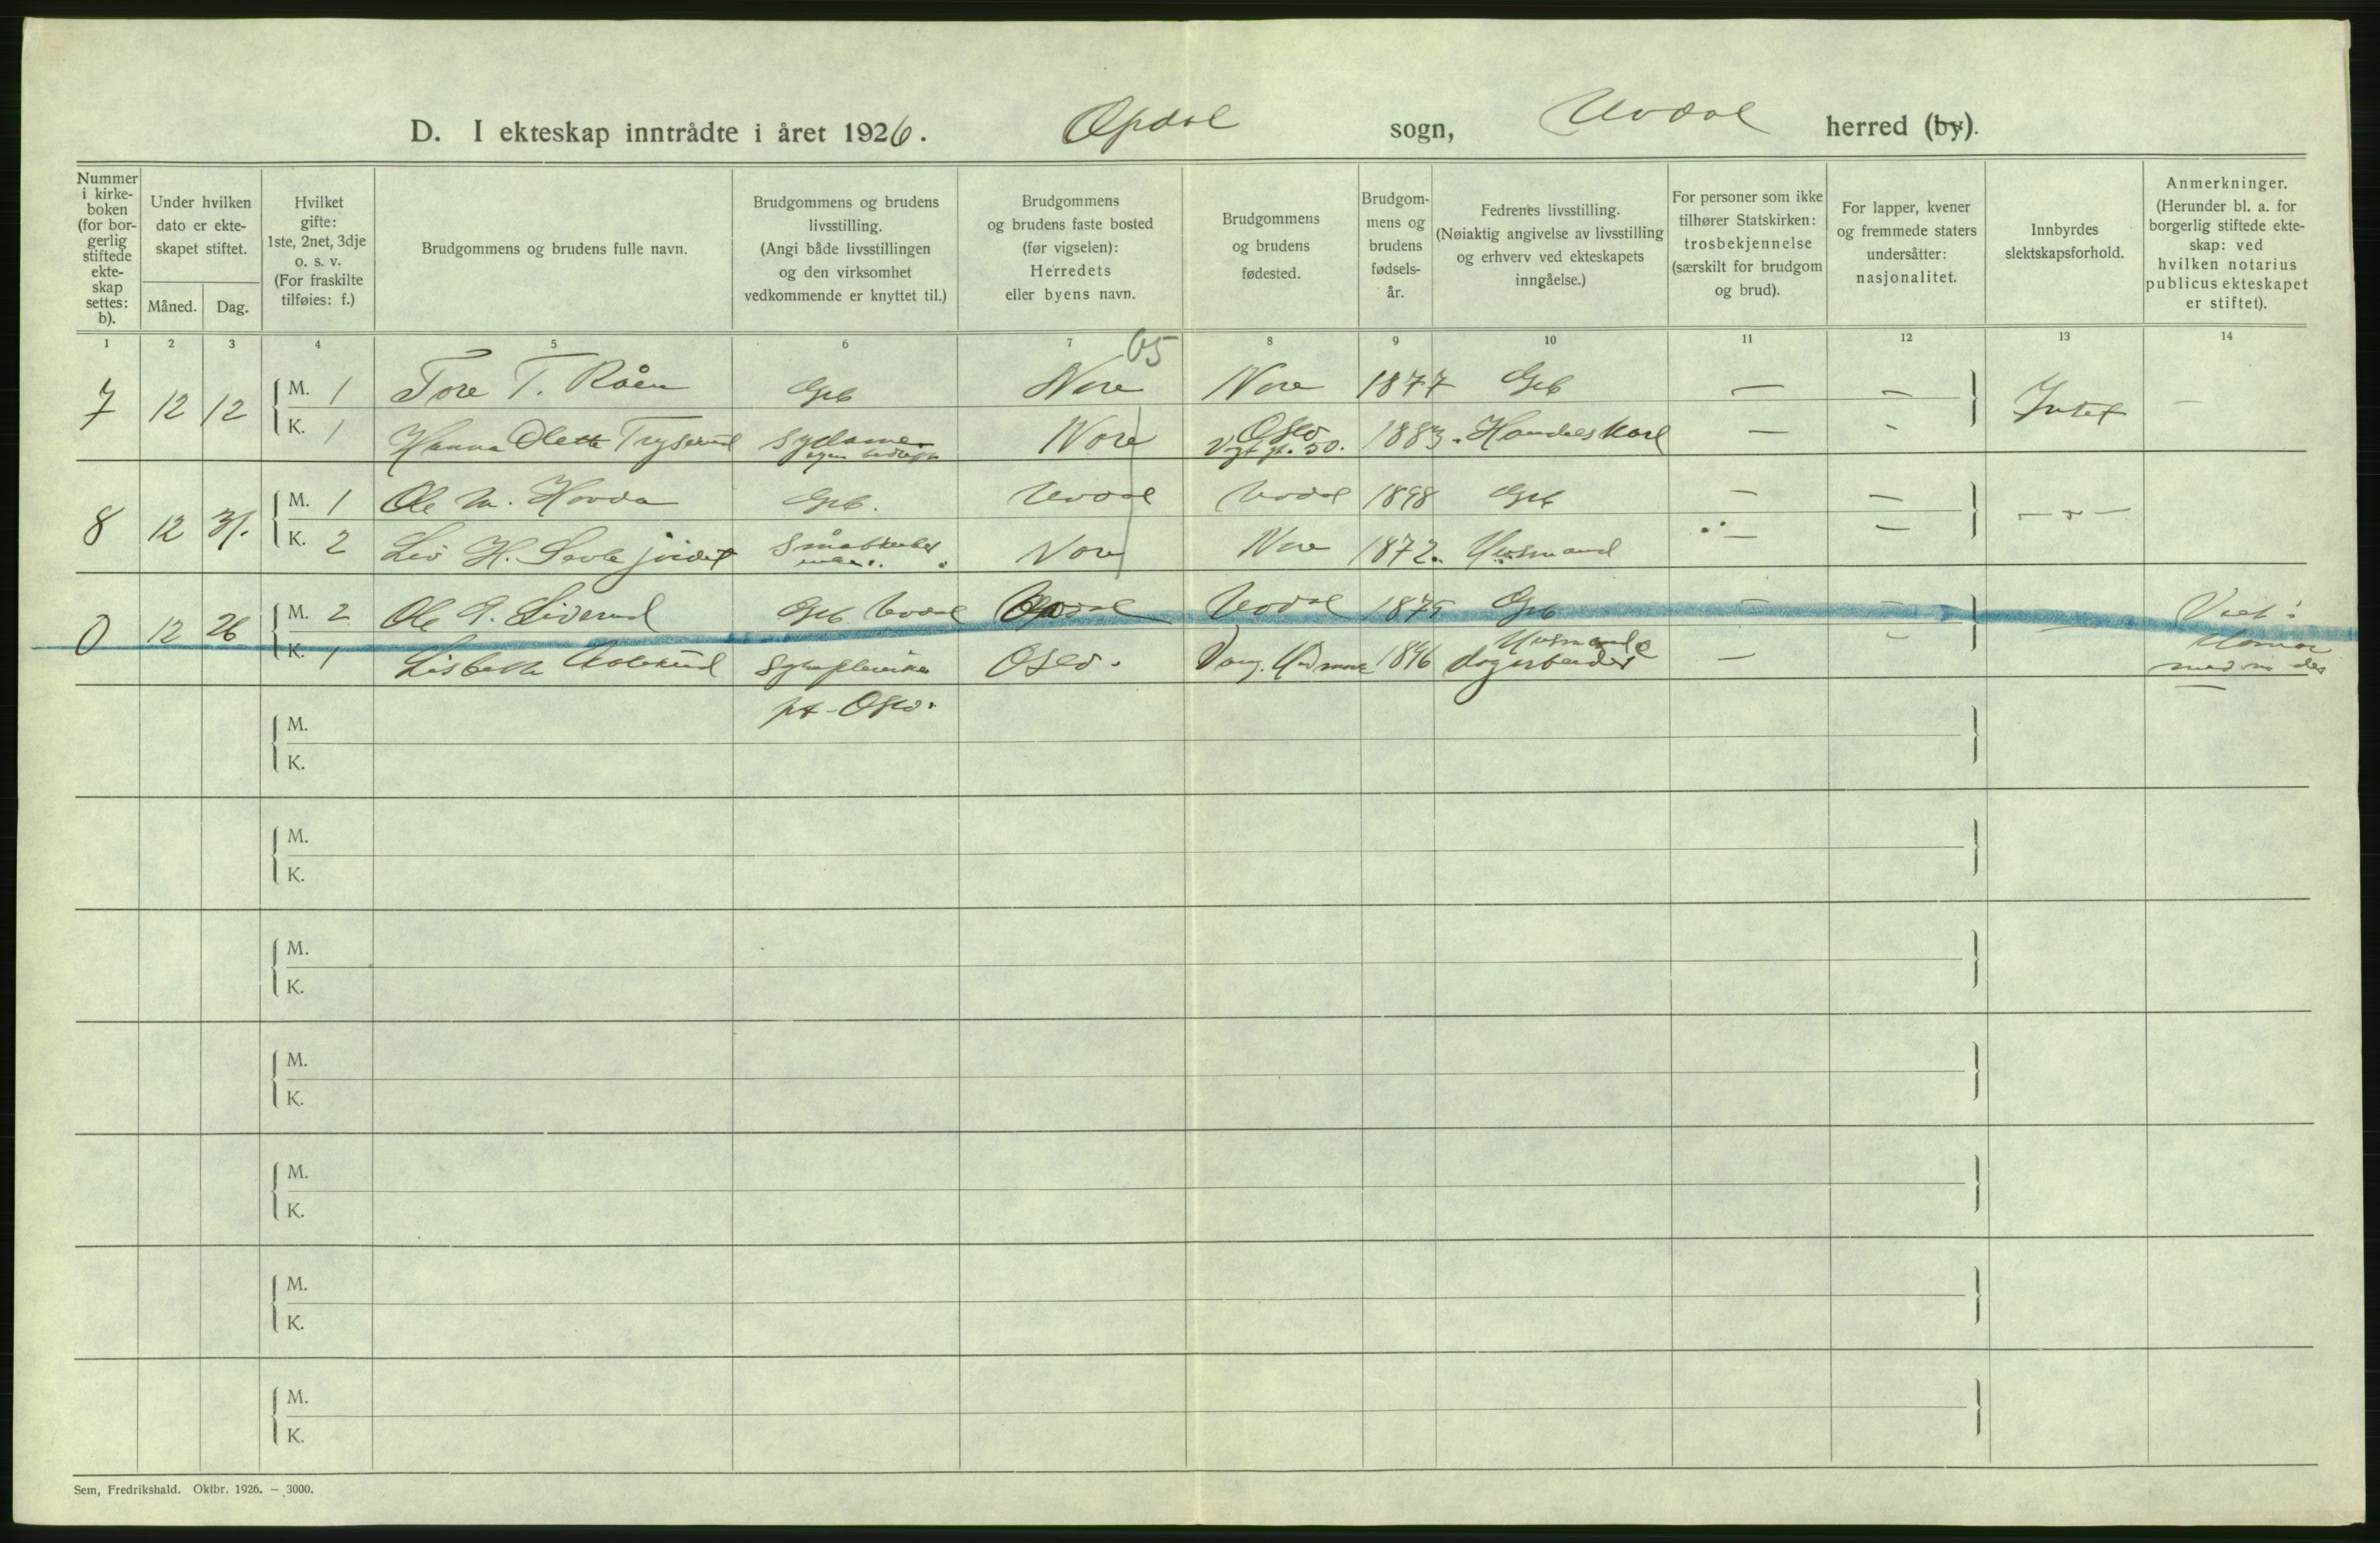 D. I ekteskap inntrådte i året 1926. Opdal sogn, Uvdal herred (by).
Nummer i kirke-boken (for bor-gerlig stiftede ekte-skap settes: b).
Under hvilken dato er ekte-skapet stiftet.
Måned.
Dag.
Hvilket gifte: 1ste, 2net, 3dje o. s. v. (For fraskilte tilføies: f.)
Brudgommens og brudens fulle navn.
Brudgommens og brudens livsstilling. (Angi både livsstillingen og den virksomhet vedkommende er knyttet til.)
Brudgommens og brudens faste bosted (før vigselen): Herredets eller byens navn.
Brudgommens og brudens fødested.
Brudgom-mens og brudens fødsels-år.
Fedrenes livsstilling. (Nøiaktig angivelse av livsstilling og erhverv ved ekteskapets inngåelse.)
For personer som ikke tilhører Statskirken: trosbekjennelse (særskilt for brudgom og brud).
For lapper, kvener og fremmede staters undersåtter: nasjonalitet.
Innbyrdes slektskapsforhold.
Anmerkninger. (Herunder bl. a. for borgerlig stiftede ekte-skap: ved hvilken notarius publicus ekteskapet er stiftet).
1 2 3 4 5 6 7 8 9 10 11 12 13 14
65
7 12 12 M. 1 Tore T. Råen Grb Nore Nore 1877 Grb — — Intet —
K. 1 Hanna Olette Trygserud Sydame Nore Oslo 1883. Handelskarl — -
egen bedrift Vogt gt. 50.
8 12 31. M. 1 Ole M. Hovda Grb. Uvdal Uvdal 1898 Grb — —
K. 2 Liv H. Nore Nore 1872. Husmand — —
0 12 26 M. 2 Ole G. Liverud Grb Uvdal Uvdal 1875 Grb — — Viet i
K. 1 Lisbeth Oslo. Vang. Hedmark 1896 Husmand — Hamar
dagarbeider
pt - Oslo.
M.
K.
M.
K.
M.
K.
M.
K.
M.
K.
M.
K.
M.
K.
Sem, Fredrikshald. Oktbr. 1926. — 3000.